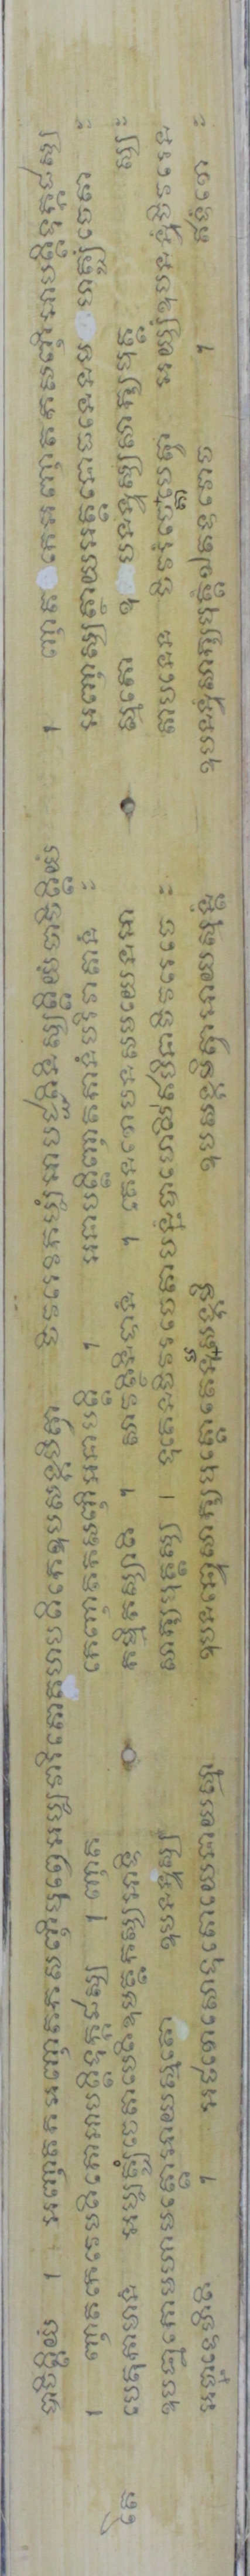 បាចិត្តិយំ ។ អញ្ញាតកអញ្ញាតកសញ្ញីបុព្វេអប្បវារិតោគហបតិកេឧបសង្កមិត្វា ចីវរេវិកប្បំអាបជ្ជតិនិស្សគ្គិយំបាចិត្តិយំ ។ ញាត កេអញ្ញាតកសញ្ញីអាបត្តិទុក្កដស្ស
។ ញាតកេវេមតិកោអាបត្តិទុក្កដស្ស ។ ញាត កេញាតកសញ្ញីអនាបត្តិ ។ អនាបត្តិញាតកានំបវារិតានំ ៈ អញ្ញស្សត្ថាយអត្តនោធនេនម ហគ្ឃំចេតា ៈ
តែ បេតុកាមានំ អប្បគ្ឃំចេតាបេតិឧមត្តកស្សអាទិ កម្មិកស្សាតិ ។ សាវត្ថិនិទានំ ។ តេនខោបនសមយេនអា ស្មតោ ឧ បនន្ទស្សសាក្យបុត្ត ស្ស ៈ
ឧបដ្ឋាកោមហាមត្តោអាយស្មតោ ឧបនន្ទស្ស សាក្យបុត្តស្ស ។ ទុតេនចីវរចេតាបន្នំបាហេសិឥមិនាចីវរចេ ៈ តាបនេន ចីវរំចេតាបេត្វា អយ្យំឧបនន្ទំចីវរេន
អច្ឆាទេហីតិ ។ អថខោសោទុតោយេនាយស្មា ឧបនន្ទោសាក្យបុត្តោតេនុបសង្កមិ ឧបសង្កមិត្វាអាយស្មន្តំ ឧបនន្ទំសាក្យបុត្តំឯតទវោច ។ ឥទំខោ ៈ